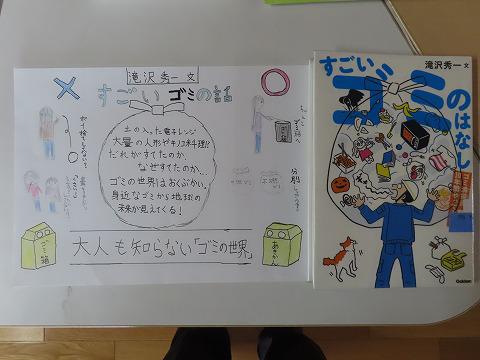 滝沢秀一 文
すごい ゴミの話
土の入った電子レンジ
大量の人形やキノコ料理!?
だれがすてたのか、
なぜすてたのか…
ゴミの世界はおくぶかい。
身近なゴミから地球の
未来が見えてくる!
ゴミ箱
あきかん
大人も知らない「ゴミの世界」
すごい
ゴミ
のはなし
滝沢秀一 文
Gakken